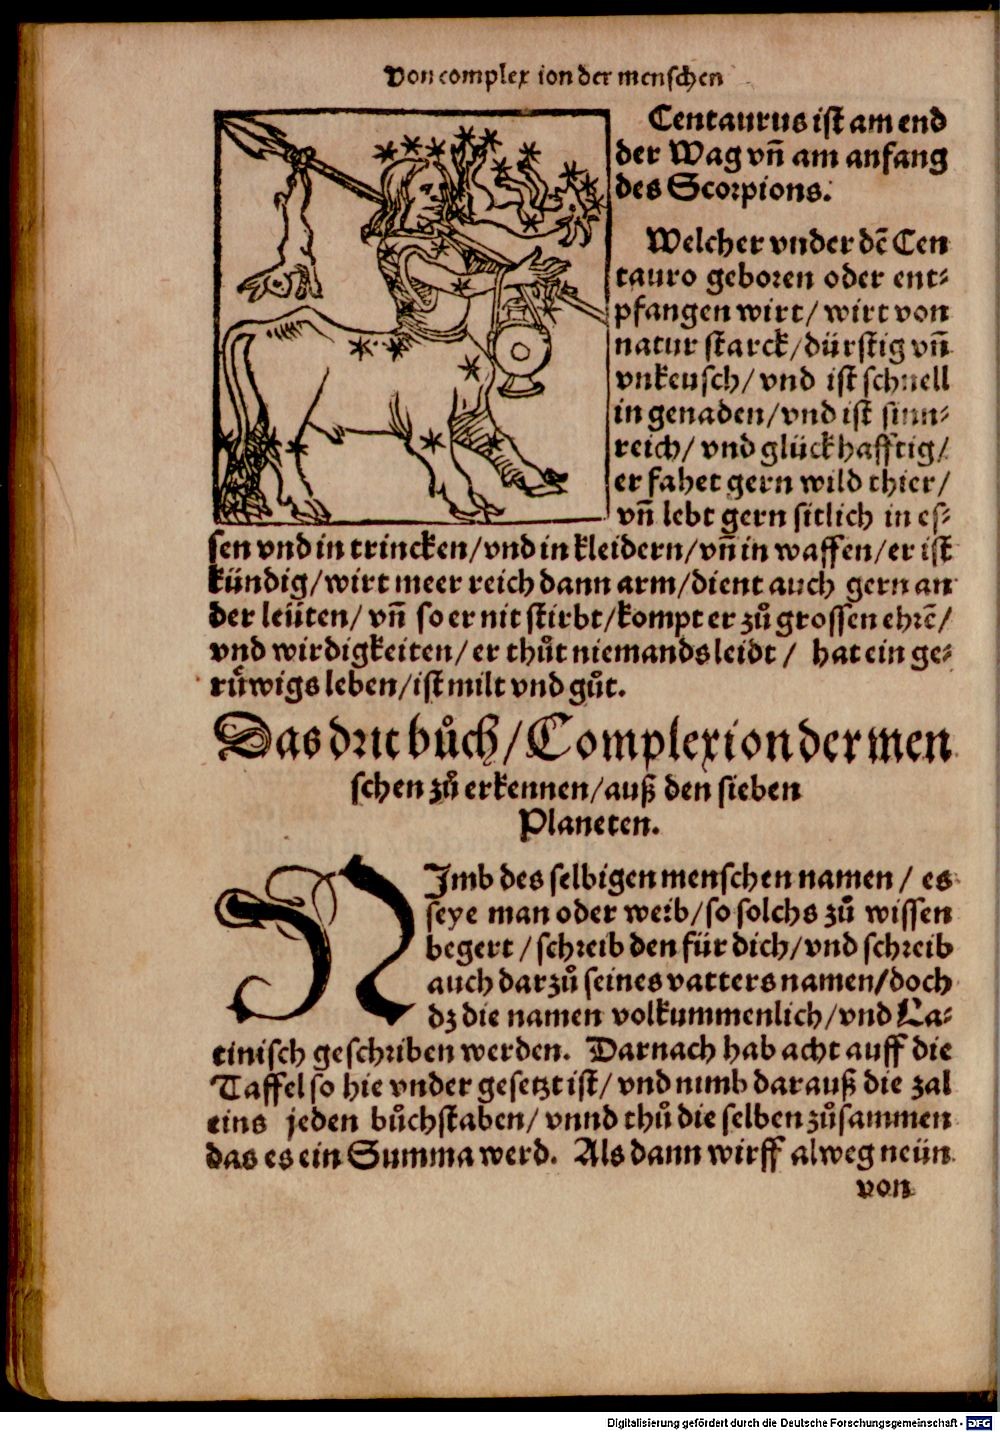 Von complex ion der menschen
Centaurus ist am end
der Wag vñ am anfang
des Scorpions.
Welcher vnder dẽ Cen
tauro geboren oder ent-
pfangen wirt/ wirt von
natur starck/dürstig vñ
vnkeusch/vnd ist schnell
in genaden/vnd ist sinn-
reich/ vnd glückhafftig/
er fahet gern wild thier/
vñ lebt gern sitlich in es-
sen vnd in trincken/vnd in kleidern/vñ in waffen/er ist
kündig/wirt meer reich dann arm/dient auch gern an
der leüten/ vñ so er nit stirbt/kompt er zů grossen ehrẽ/
vnd wirdigkeiten/ er thůt niemands leidt / hat ein ge-
růwigs leben/ist milt vnd gůt.
Das drit bůch/Complexion der men
schen zů erkennen/auß den sieben
Planeten.
NJmb des selbigen menschen namen / es
seye man oder weib/so solchs zů wissen
begert /schreib den für dich/vnd schreib
auch darzů seines vatters namen/doch
dz die namen volkummenlich/vnd La-
tinisch geschriben werden. Darnach hab acht auff die
Taffel so hie vnder gesetzt ist/ vnd nimb darauß die zal
eins jeden bůchstaben/ vnnd thů die selben zůsammen
das es ein Summa werd. Als dann wirff alweg neün
von
Digitalisierung gefördert durch die Deutsche Forschungsgemeinschaft - DFG